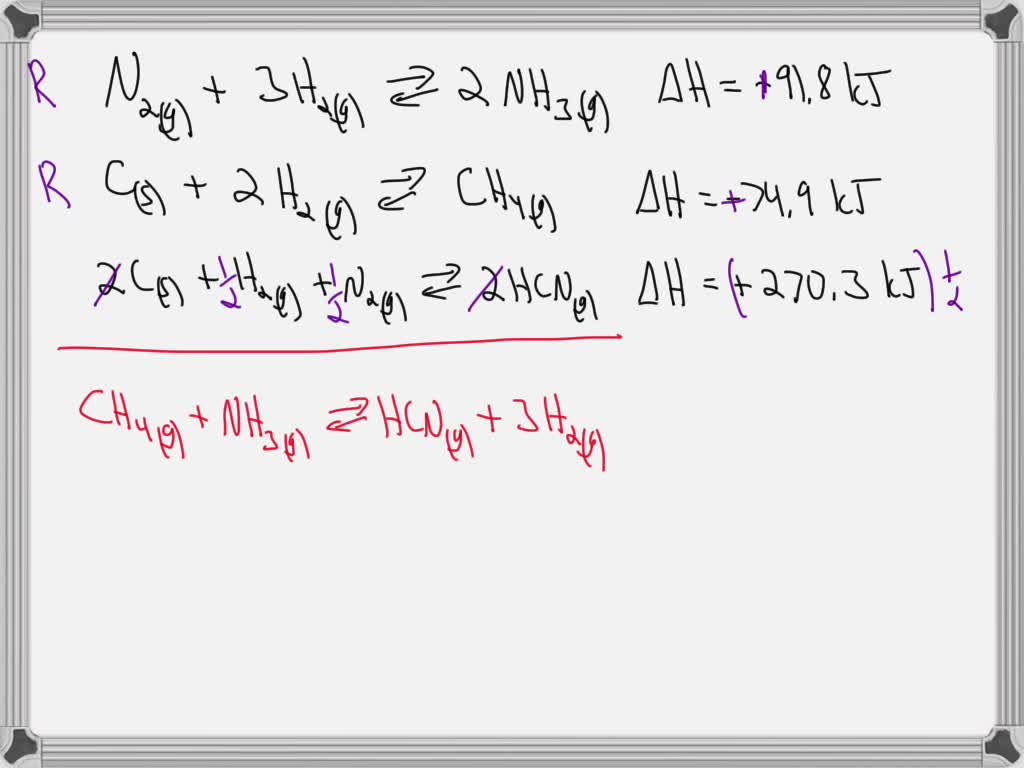 R N₂(g) + 3H₂(g) ⇌ 2 NH₃(g) ΔH = +91.8 kJ
R C(s) + 2 H₂(g) ⇌ CH₄(g) ΔH = +74.9 kJ
2C(s) + 1/2 H₂(g) + 1/2 N₂(g) ⇌ 2HCN(g) ΔH = (+270.3 kJ) 1/2
CH₄(g) + NH₃(g) ⇌ HCN(g) + 3H₂(g)